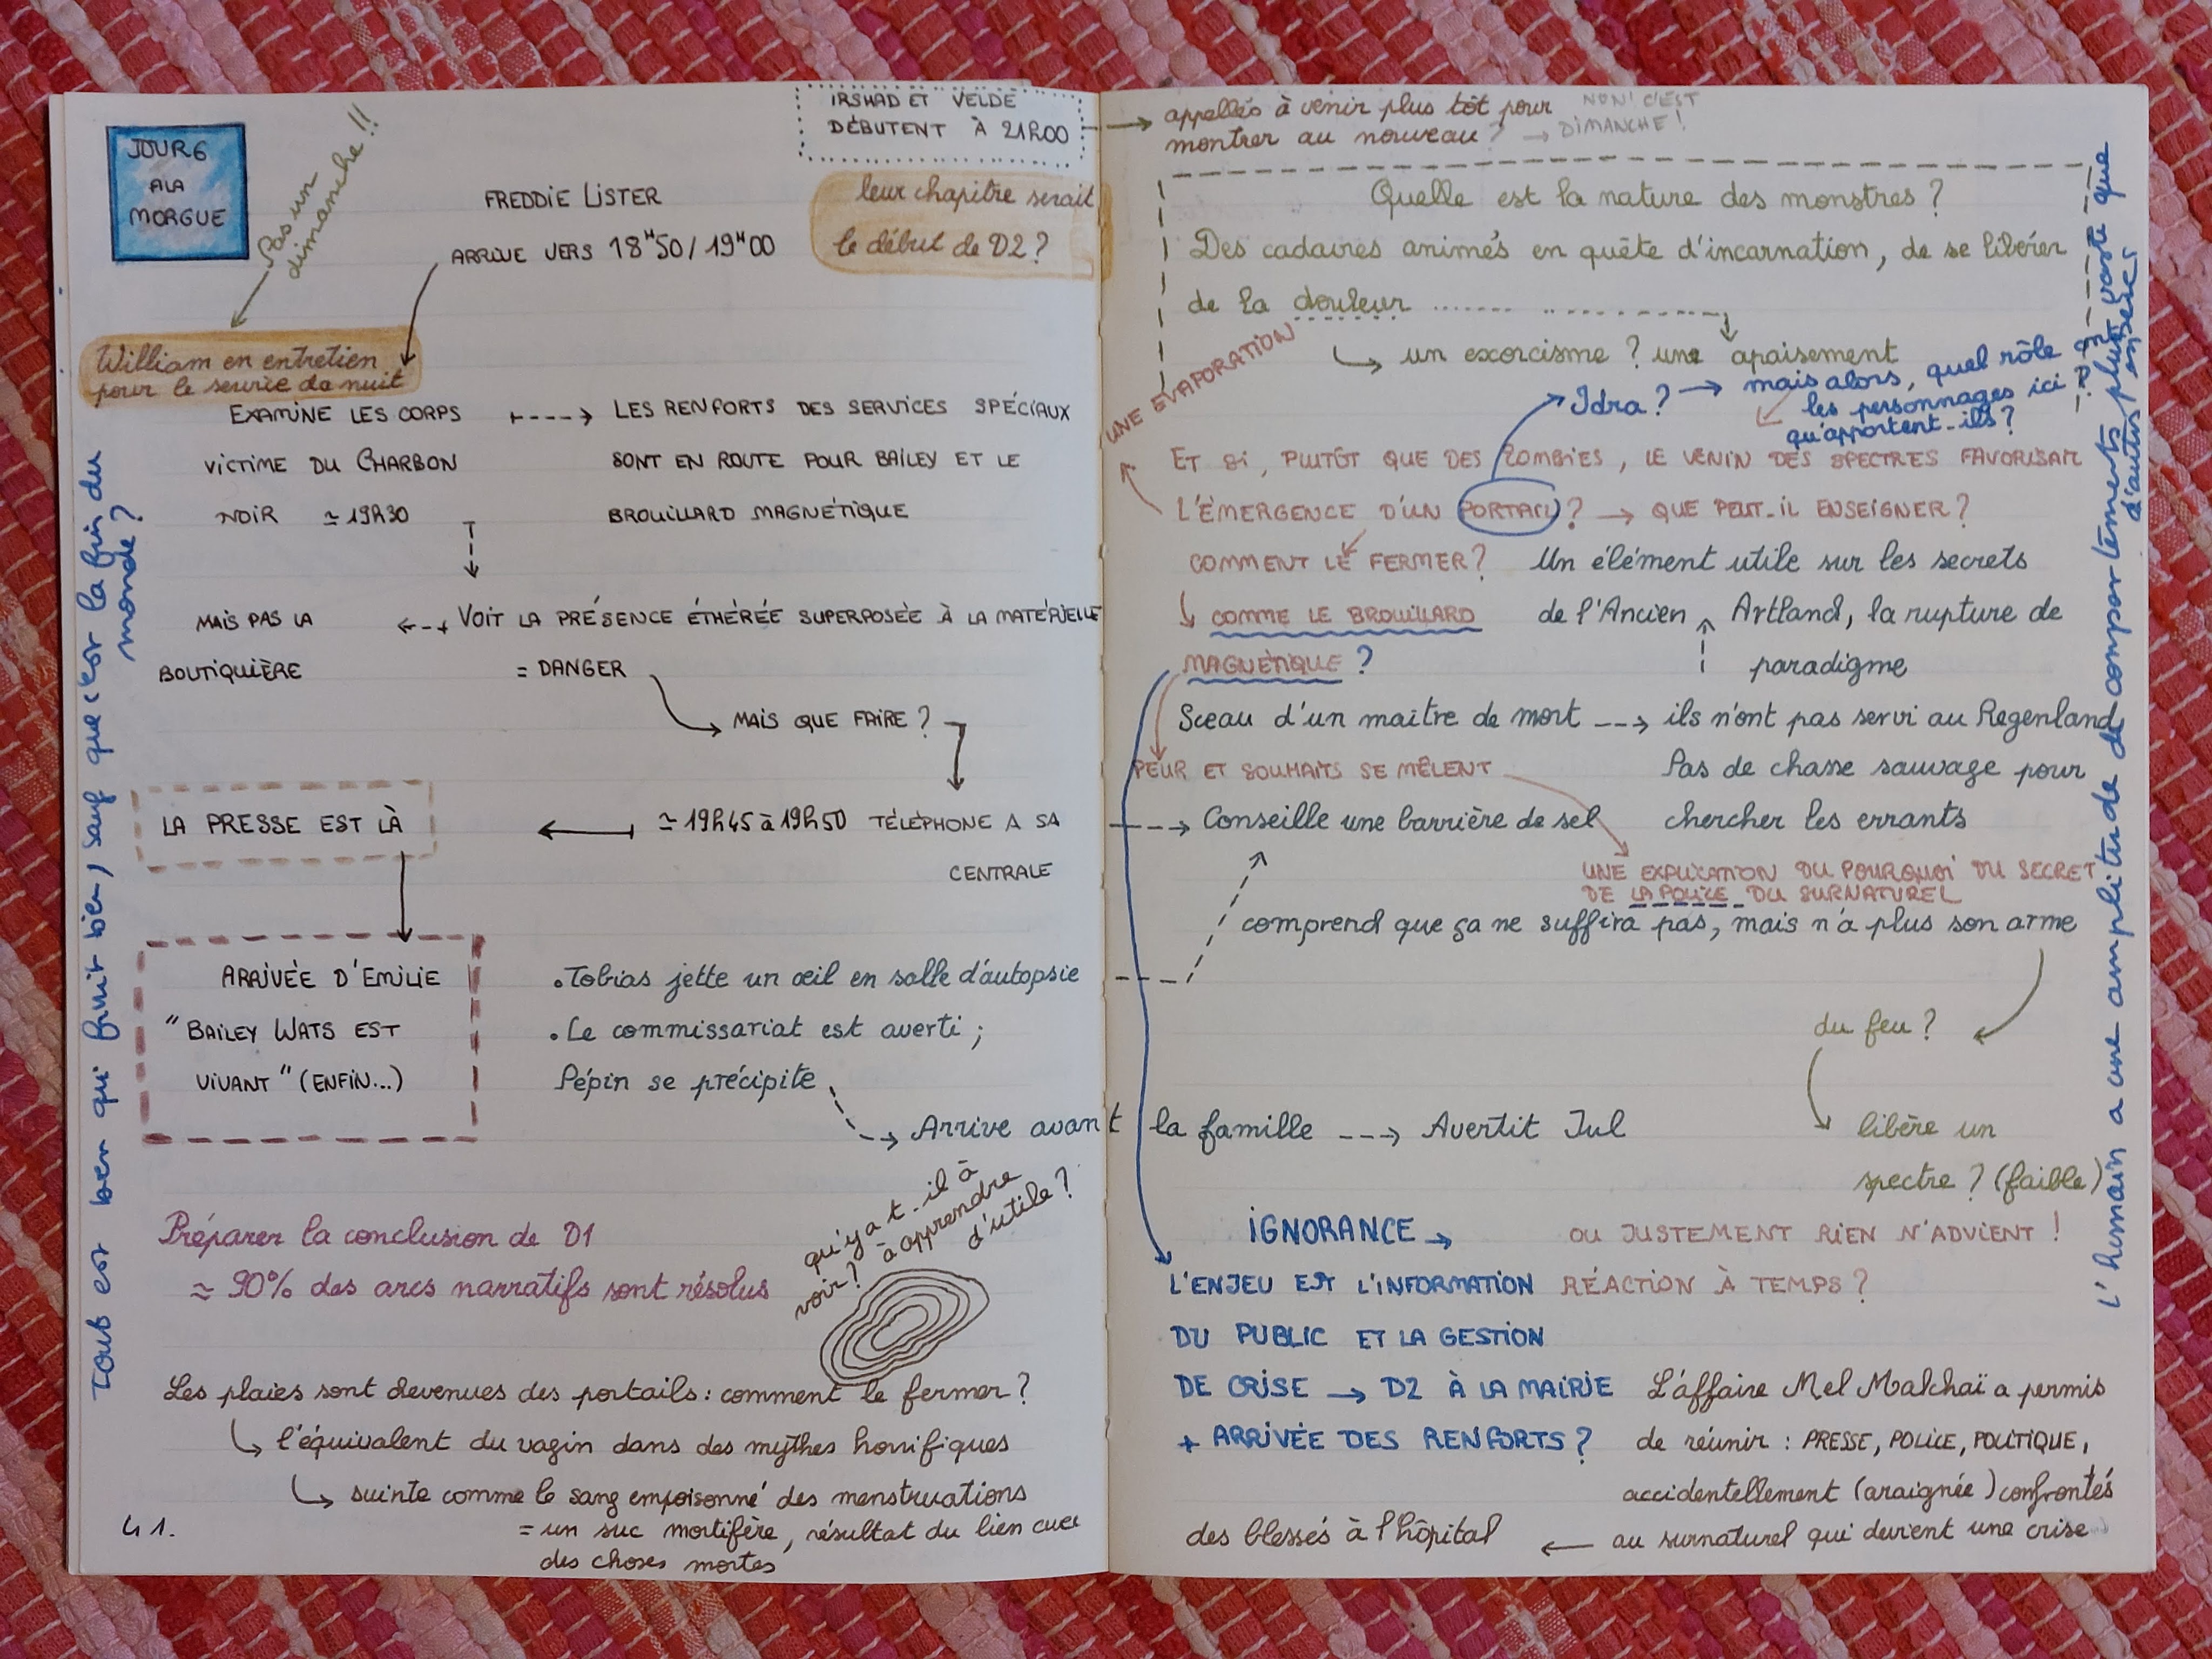 JOUR 6
A LA
MORGUE
Pas un
dimanche !!
IRSHAD ET VELDE
DÉBUTENT À 21h00
FREDDIE LISTER
ARRIVE VERS 18H50 / 19H00
leur chapitre serait
le début de D2 ?
William en entretien
pour le service de nuit
EXAMINE LES CORPS
VICTIME DU CHARBON
NOIR ≃ 19h30
LES RENFORTS DES SERVICES SPÉCIAUX
SONT EN ROUTE POUR BAILEY ET LE
BROUILLARD MAGNÉTIQUE
MAIS PAS LA
BOUTIQUIÈRE
VOIT LA PRÉSENCE ÉTHÉRÉE SUPERPOSÉE À LA MATÉRIELLE
= DANGER
MAIS QUE FAIRE ?
LA PRESSE EST LÀ
≃ 19h45 à 19h50 TÉLÉPHONE A SA
CENTRALE
ARRIVÉE D'EMILIE
"BAILEY WATS EST
VIVANT" (ENFIN...)
. Tobias jette un œil en salle d'autopsie
. Le commissariat est averti ;
Pépin se précipite
Arrive avant la famille ---> Avertit Jul
Préparer la conclusion de D1
≃ 90% des arcs narratifs sont résolus
qu'y a t-il à
voir ? à apprendre
d'utile ?
Les plaies sont devenues des portails : comment le fermer ?
l'équivalent du vagin dans des mythes horrifiques
suinte comme le sang empoisonné des menstruations
= un suc mortifère, résultat du lien avec
des choses mortes
41.
Tout est bien qui finit bien, sauf que c'est la fin du
monde ?
appellés à venir plus tôt pour
montrer au nouveau ? → NON ! C'EST
DIMANCHE !
Quelle est la nature des monstres ?
Des cadavres animés en quête d'incarnation, de se libérer
de la douleur
un exorcisme ? une apaisement
UNE ÉVAPORATION
Idra ? → mais alors, quel rôle
les personnages ici ?
qu'apportent-ils ?
ET SI, PLUTÔT QUE DES ZOMBIES, LE VENIN DES SPECTRES FAVORISAIT
L'ÉMERGENCE D'UN PORTAIL ? → QUE PEUT-IL ENSEIGNER ?
COMMENT LE FERMER ?
COMME LE BROUILLARD
MAGNÉTIQUE ?
Un élément utile sur les secrets
de l'Ancien Artland, la rupture de
paradigme
Sceau d'un maître de mort ---> ils n'ont pas servi au Regenland
PEUR ET SOUHAITS SE MÊLENT
Pas de chasse sauvage pour
chercher les errants
Conseille une barrière de sel
UNE EXPLICATION DU POURQUOI DU SECRET
DE LA POLICE DU SURNATUREL
comprend que ça ne suffira pas, mais n'a plus son arme
du feu ?
libère un
spectre ? (faible)
OU JUSTEMENT RIEN N'ADVIENT !
IGNORANCE →
L'ENJEU EST L'INFORMATION
DU PUBLIC ET LA GESTION
DE CRISE → D2 À LA MAIRIE
+ ARRIVÉE DES RENFORTS ?
RÉACTION À TEMPS ?
L'affaire Mel Malchaï a permis
de réunir : PRESSE, POLICE, POLITIQUE,
accidentellement (araignée) confrontés
au surnaturel qui devient une crise
des blessés à l'hôpital
L'humain a une amplitude de comportements plus vaste que
d'autres espèces